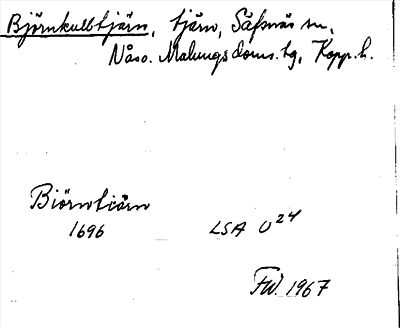 Björnkulbtjärn, tjärn, Säfsnäs sn,
Nås o. Malungs doms.tg, Kopp.l.
Biörntiärn
1696 LSA U24
FW. 1967